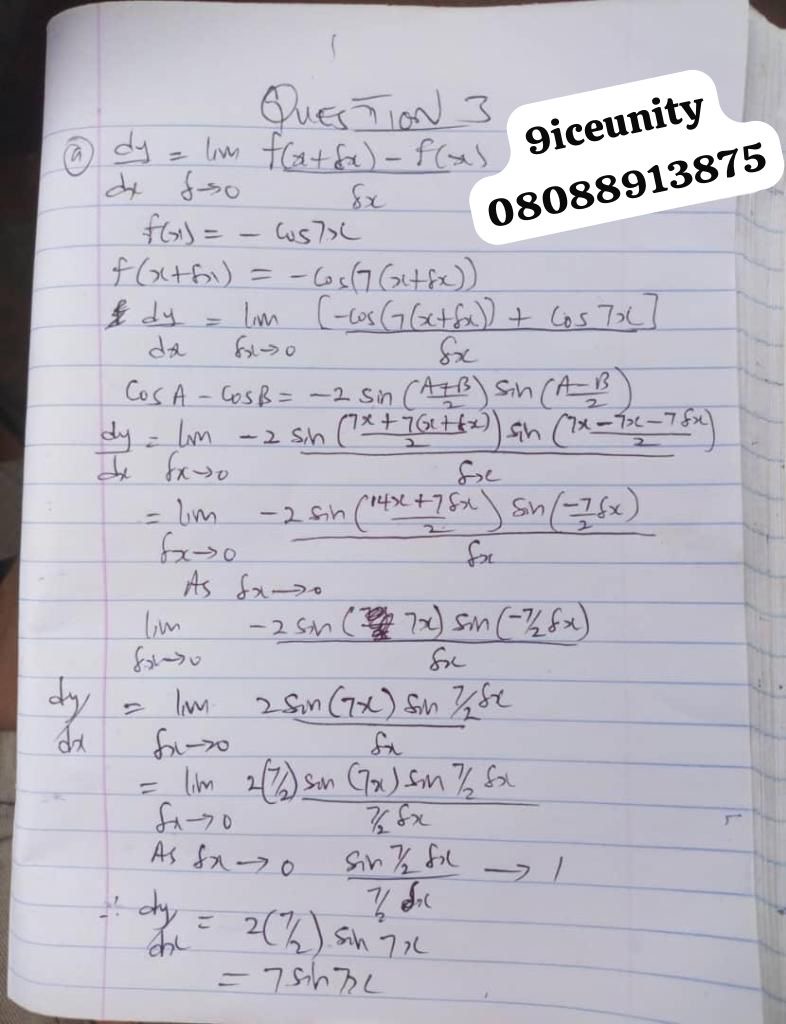 QUESTION 3
9iceunity
08088913875
(a) dy/dx = lim δ→0 f(x+δx) - f(x) / δx
f(x) = - cos7x
f(x+δx) = -cos(7(x+δx))
dy/dx = lim δx→0 [-cos(7(x+δx)) + cos 7x] / δx
Cos A - Cos B = -2 sin (A+B/2) sin (A-B/2)
dy/dx = lim δx→0 -2 sin (7x + 7(x+δx)/2) sin (7x-7x-7δx/2) / δx
= lim δx→0 -2 sin (14x+7δx/2) sin (-7/2 δx) / δx
As δx→0
lim δx→0 -2 sin (7x) sin (-7/2 δx) / δx
dy/dx = lim δx→0 2 sin(7x) sin 7/2 δx / δx
= lim δx→0 2(7/2) sin (7x) sin 7/2 δx / 7/2 δx
As δx → 0 sin 7/2 δx / 7/2 δx → 1
∴ dy/dx = 2(7/2) sin 7x
= 7 sin 7x